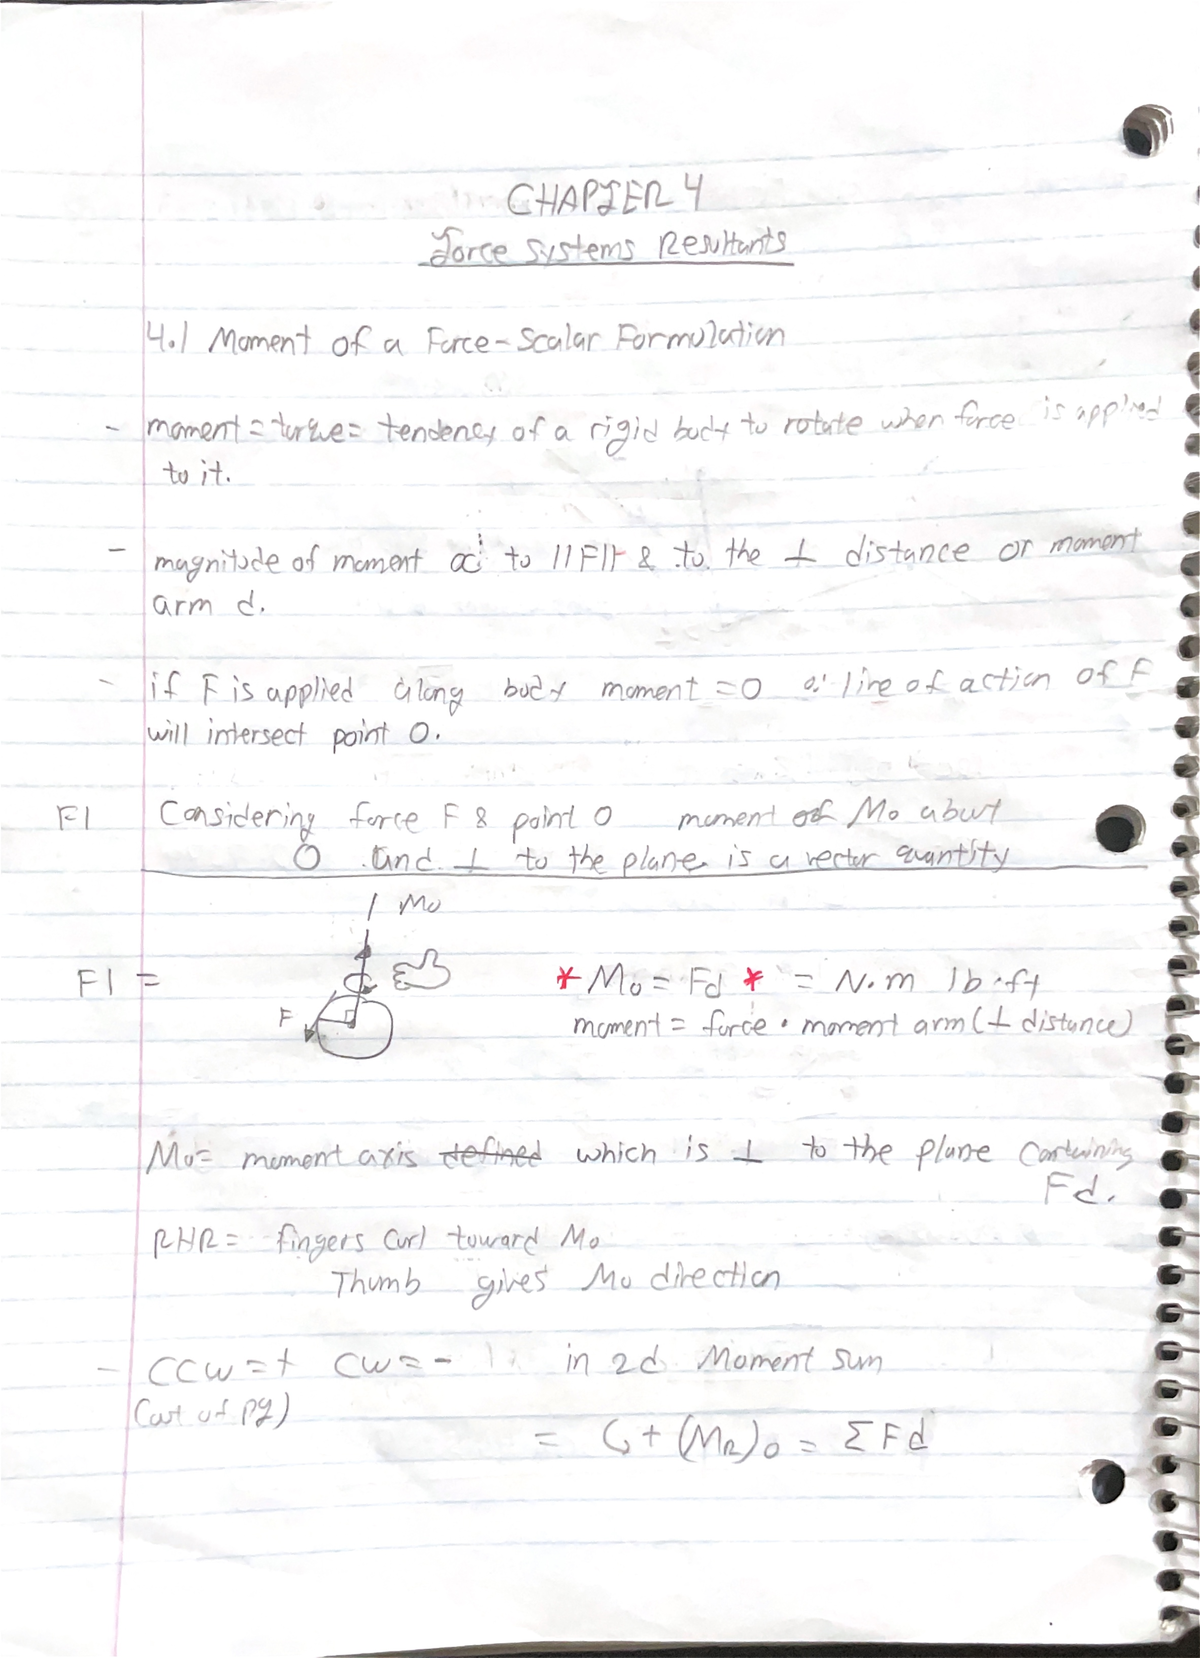 CHAPTER 4
Force Systems Resultants
4.1 Moment of a Force-Scalar Formulation
- moment = torque = tendency of a rigid body to rotate when force is applied
to it.
- magnitude of moment ∝ to ||F|| & to the ⊥ distance or moment
arm d.
- if F is applied along body moment = 0 ∵ line of action of F
will intersect point O.
F1 Considering force F & point O moment of Mo about
O and ⊥ to the plane is a vector quantity
Mo
F1 = * Mo = Fd * = N.m lb.ft
F moment = force • moment arm (⊥ distance)
Mo = moment axis defined which is ⊥ to the plane containing
Fd.
RHR = fingers curl toward Mo
Thumb gives Mo direction
- CCW = + CW = - in 2d Moment sum
(out of pg)
= ↺+ (MR)o = ΣFd